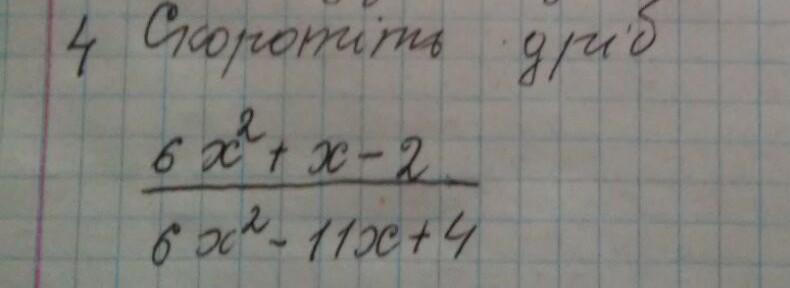 4 Скоротіть дріб
6x²+x-2
6x²-11x+4